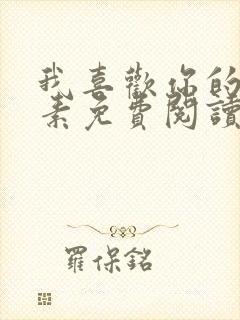 我喜歡你的
素免費閱讀
羅保銘